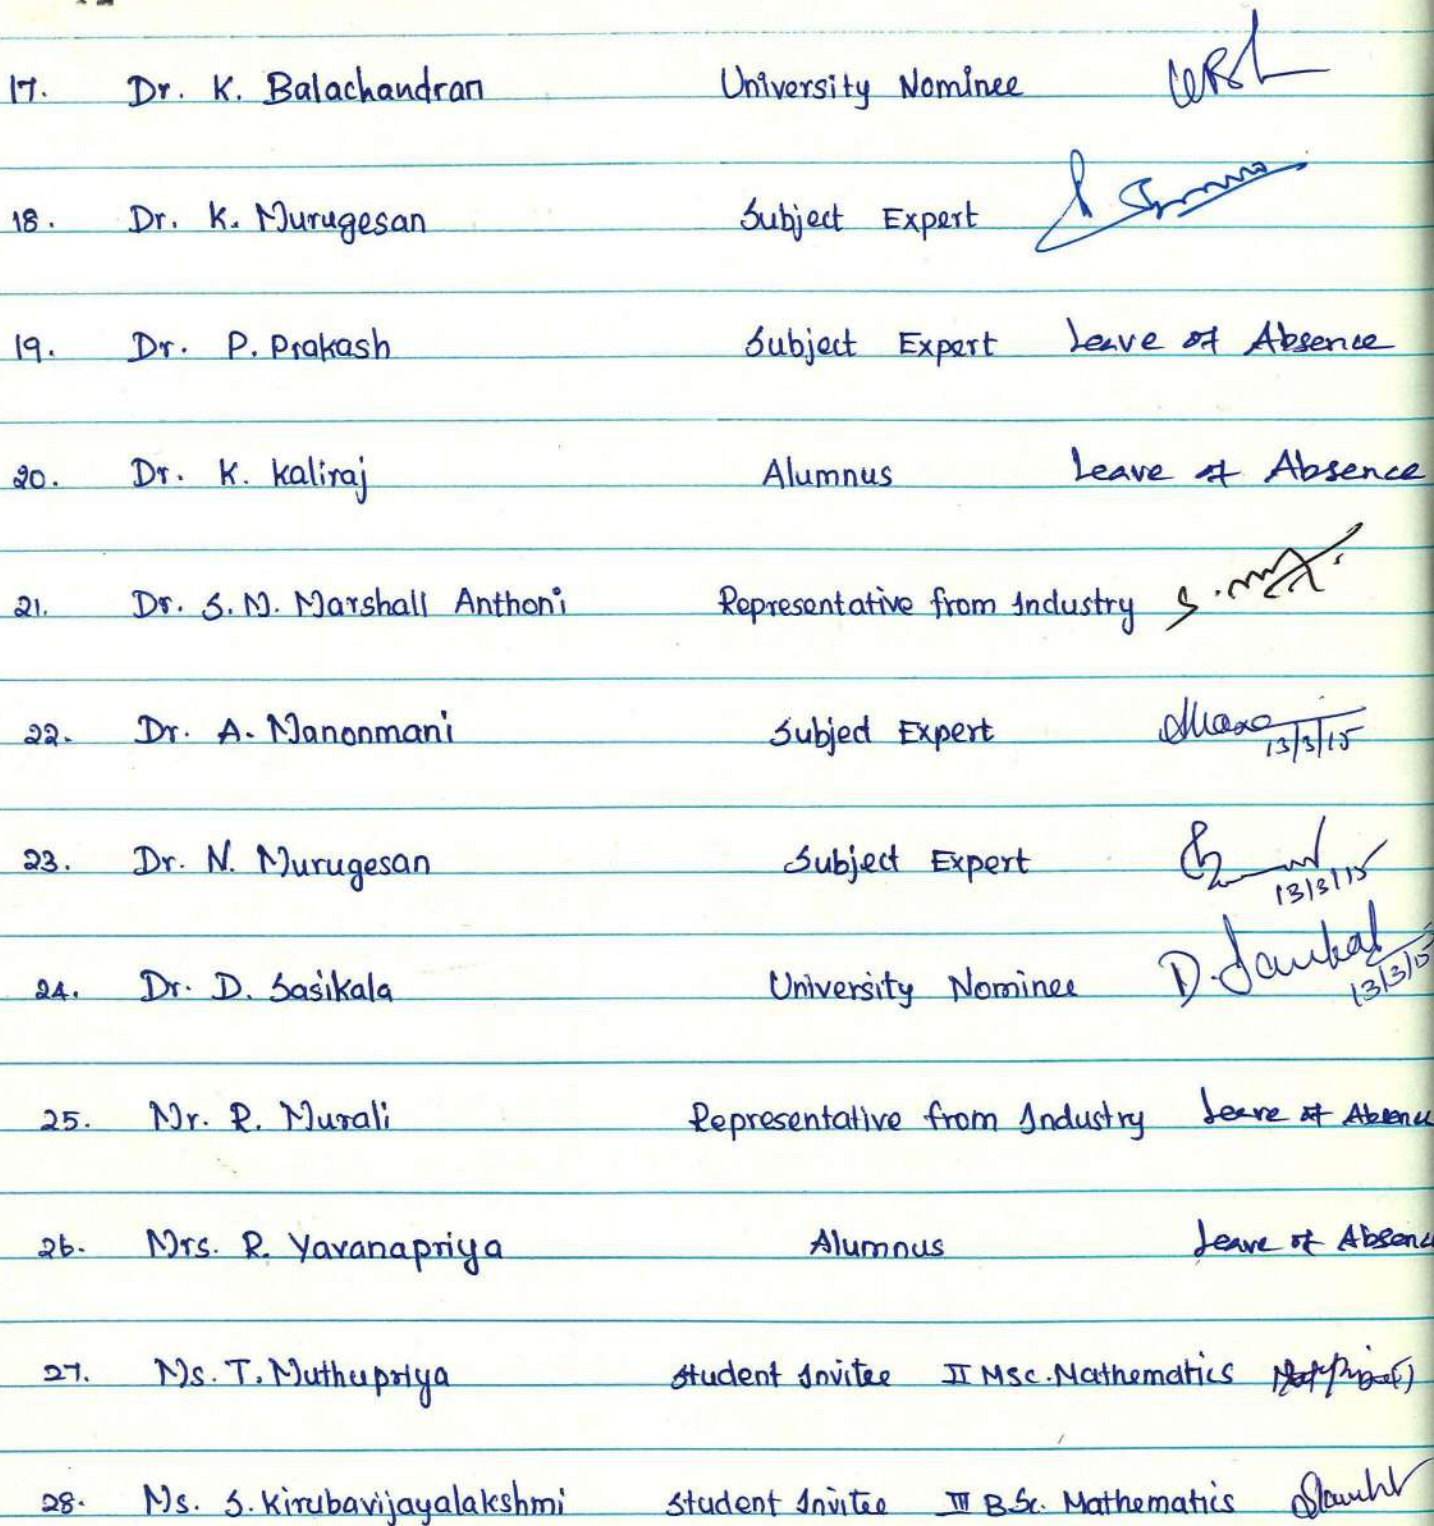 17. Dr. K. Balachandran University Nominee
18. Dr. K. Murugesan Subject Expert
19. Dr. P. Prakash Subject Expert Leave of Absence
20. Dr. K. Kaliraj Alumnus Leave of Absence
21. Dr. S.M. Marshall Anthoni Representative from Industry
22. Dr. A. Manonmani Subject Expert 13/3/15
23. Dr. N. Murugesan Subject Expert 13/3/15
24. Dr. D. Sasikala University Nominee 13/3/15
25. Mr. R. Murali Representative from Industry Leave of Absence
26. Mrs. R. Yavanapriya Alumnus Leave of Absence
27. Ms. T. Muthupriya Student Invitee II MSc. Mathematics
28. Ms. S. Kirubavijayalakshmi Student Invitee III B.Sc. Mathematics